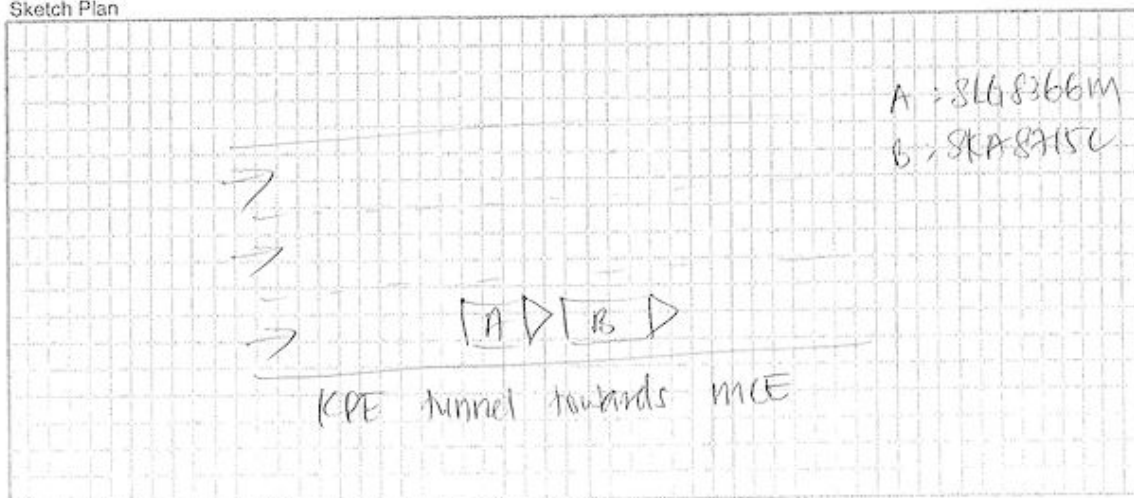 Sketch Plan
A : SLG8366M
B : SKA8715C
A B
KPE tunnel towards MCE